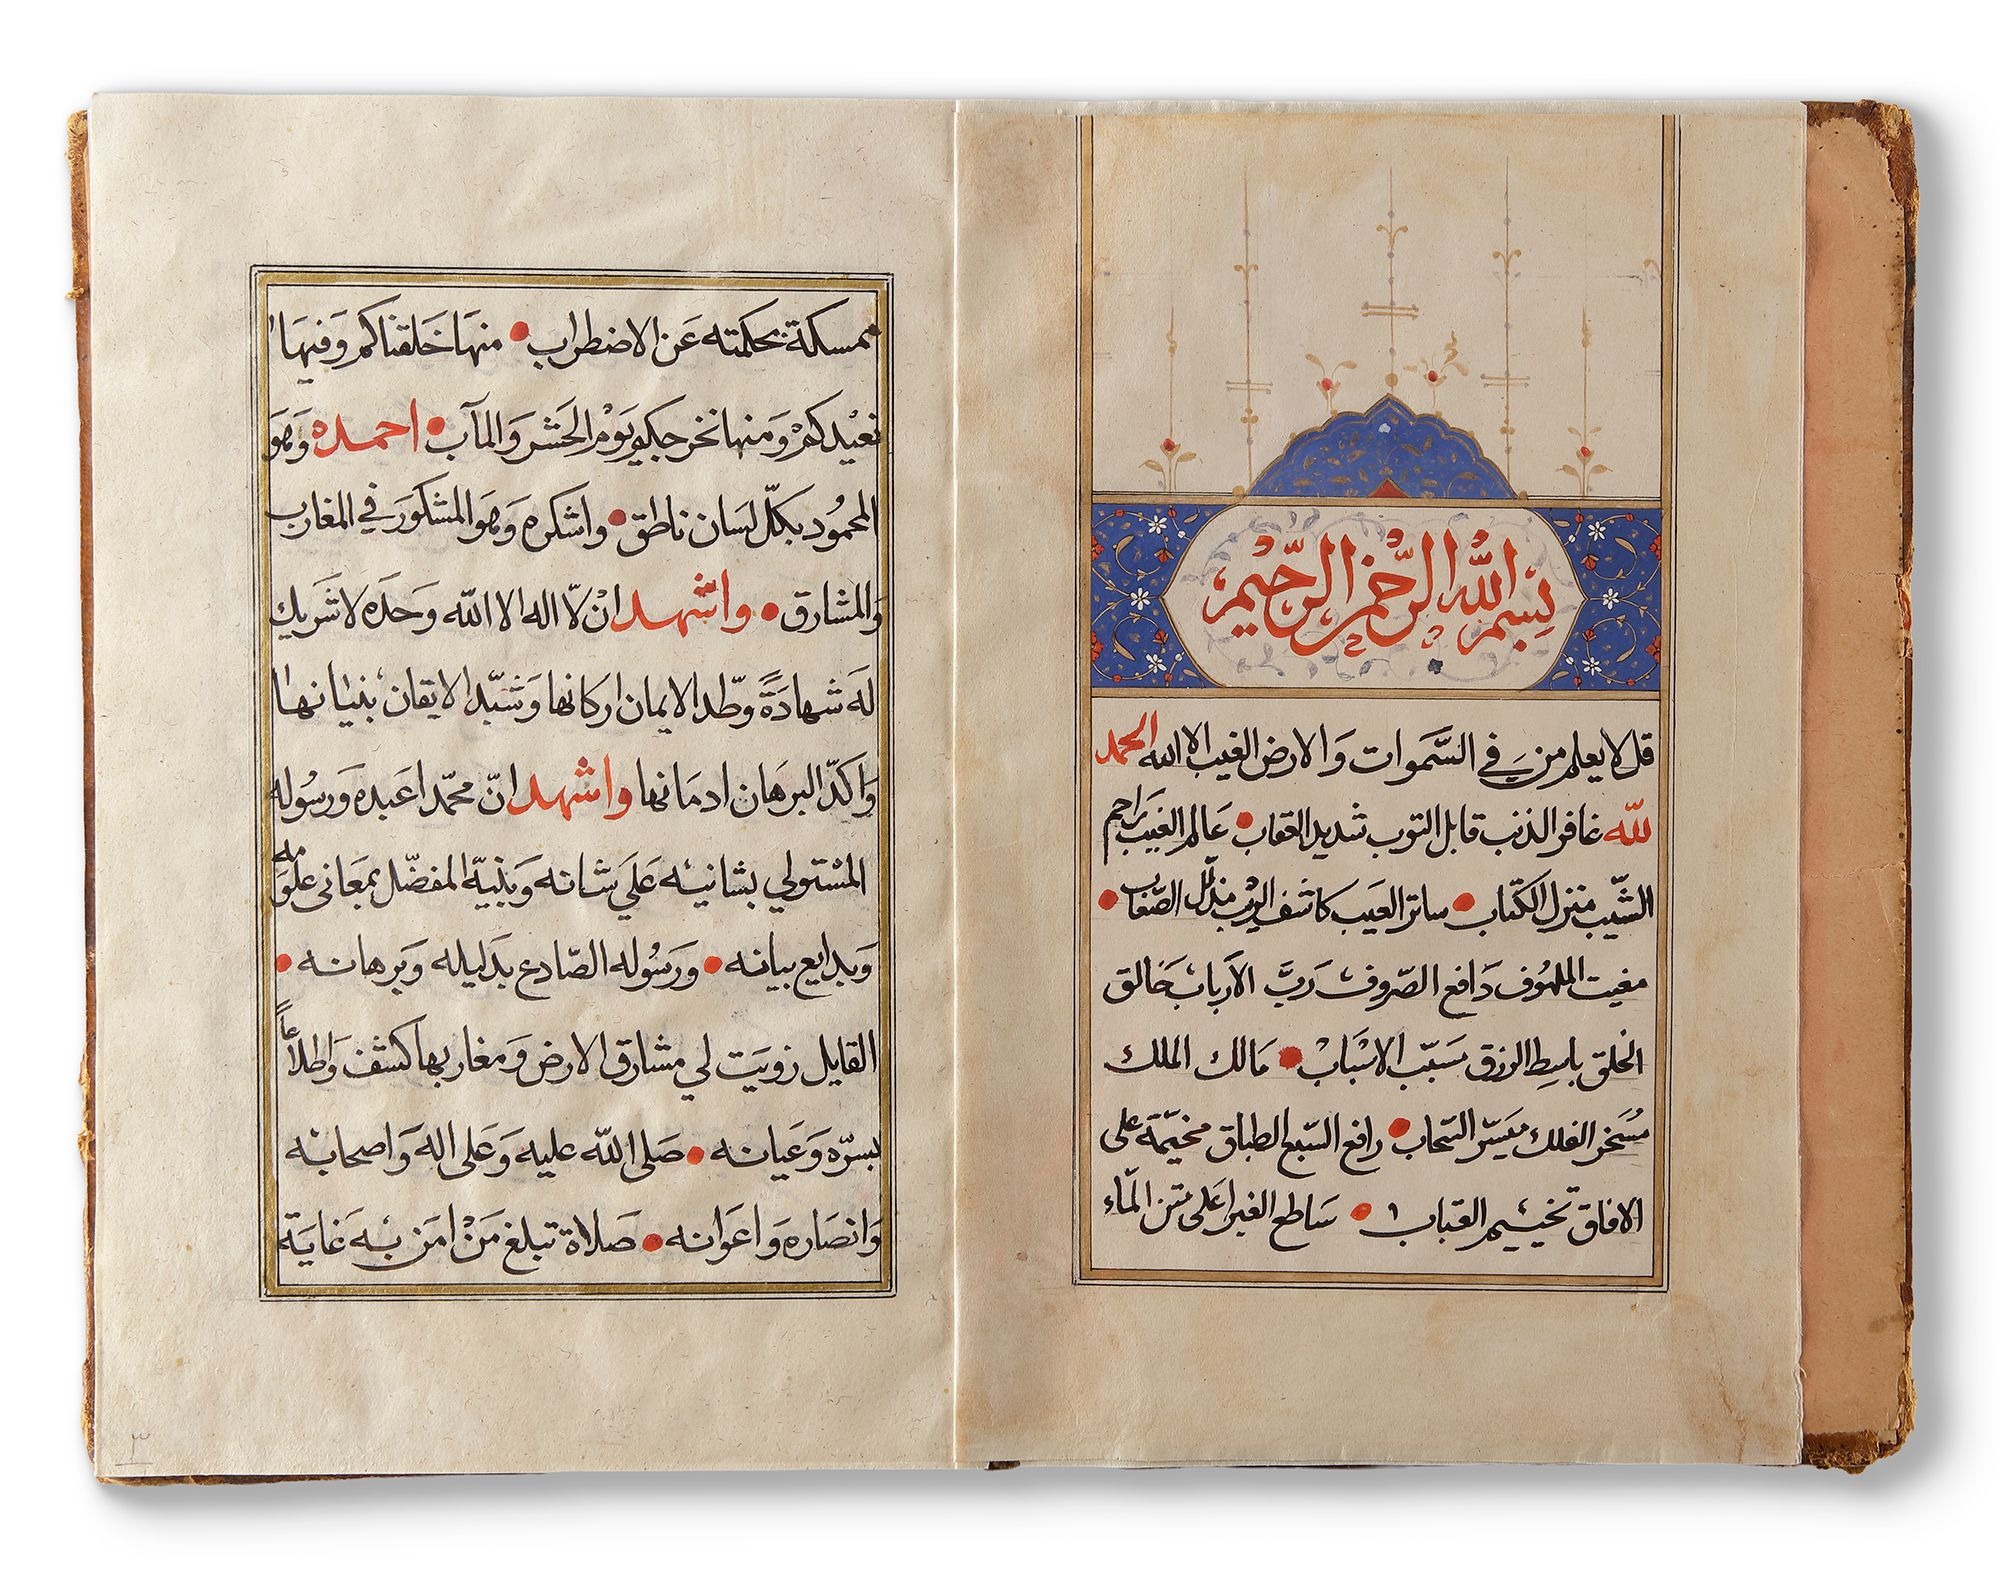 بسم الله الرحمن الرحيم
قل لا يعلم من في السَّموات وَالارض الغيب الا الله الحمد
لله غافر الذنب قابل التوب شديد العقاب عالم الغيب راحم
الشّيب منزل الكتاب ساتر العيب كاشف الريب مذلّل الصّعاب
مغيث الملهوف دَافع الصّروف رَبّ الارباب خالق
الخلق باسِط الرزق مسَبّب الاسْبَاب مَالك الملك
مُسَخر الفلك ميسّر السّحاب رافع السّبع الطباق مخيّمة على
الافاق تخييم القباب سَاطح الغبرا عَلى متن المآء
ممسكة بحكمته عَن الاضطراب منهَا خَلقناكم وَفيهَا
نعيْدكمْ وَمنها نخرجكم يَوْم الحَشر وَالمآب احمده وَهو
المحمُود بكلّ لسَان ناطق واشكره وَهو المشكوَر في المغارب
وَالمشارق واشهد انْ لا اله الا الله وَحدَه لا شَريك
لهَ شهادَةً وطّد الايمان اركانها وَشَيّد الايقان بنيانهَا
وَاكدّ البرهَان ادمَانها واشهد انّ محمّدا عَبده وَرسُوله
المسْتولي بشانيْه عَلَي شانه وَبنيّه المفضّل بمعَاني علوَمه
وَبدَايع بيَانه وَرسُوله الصّادع بدَليله وَبرهَانه
القايل زويَت لي مشارق الارض وَمغاربها كشف وَاطلاعاً
بسرّه وَعيَانه صَلى الله عليه وَعَلى اله وَاصحابه
وَانصَاره وَاعوَانه صَلاة تبلغ مَنْ امَن به غايَة
٣